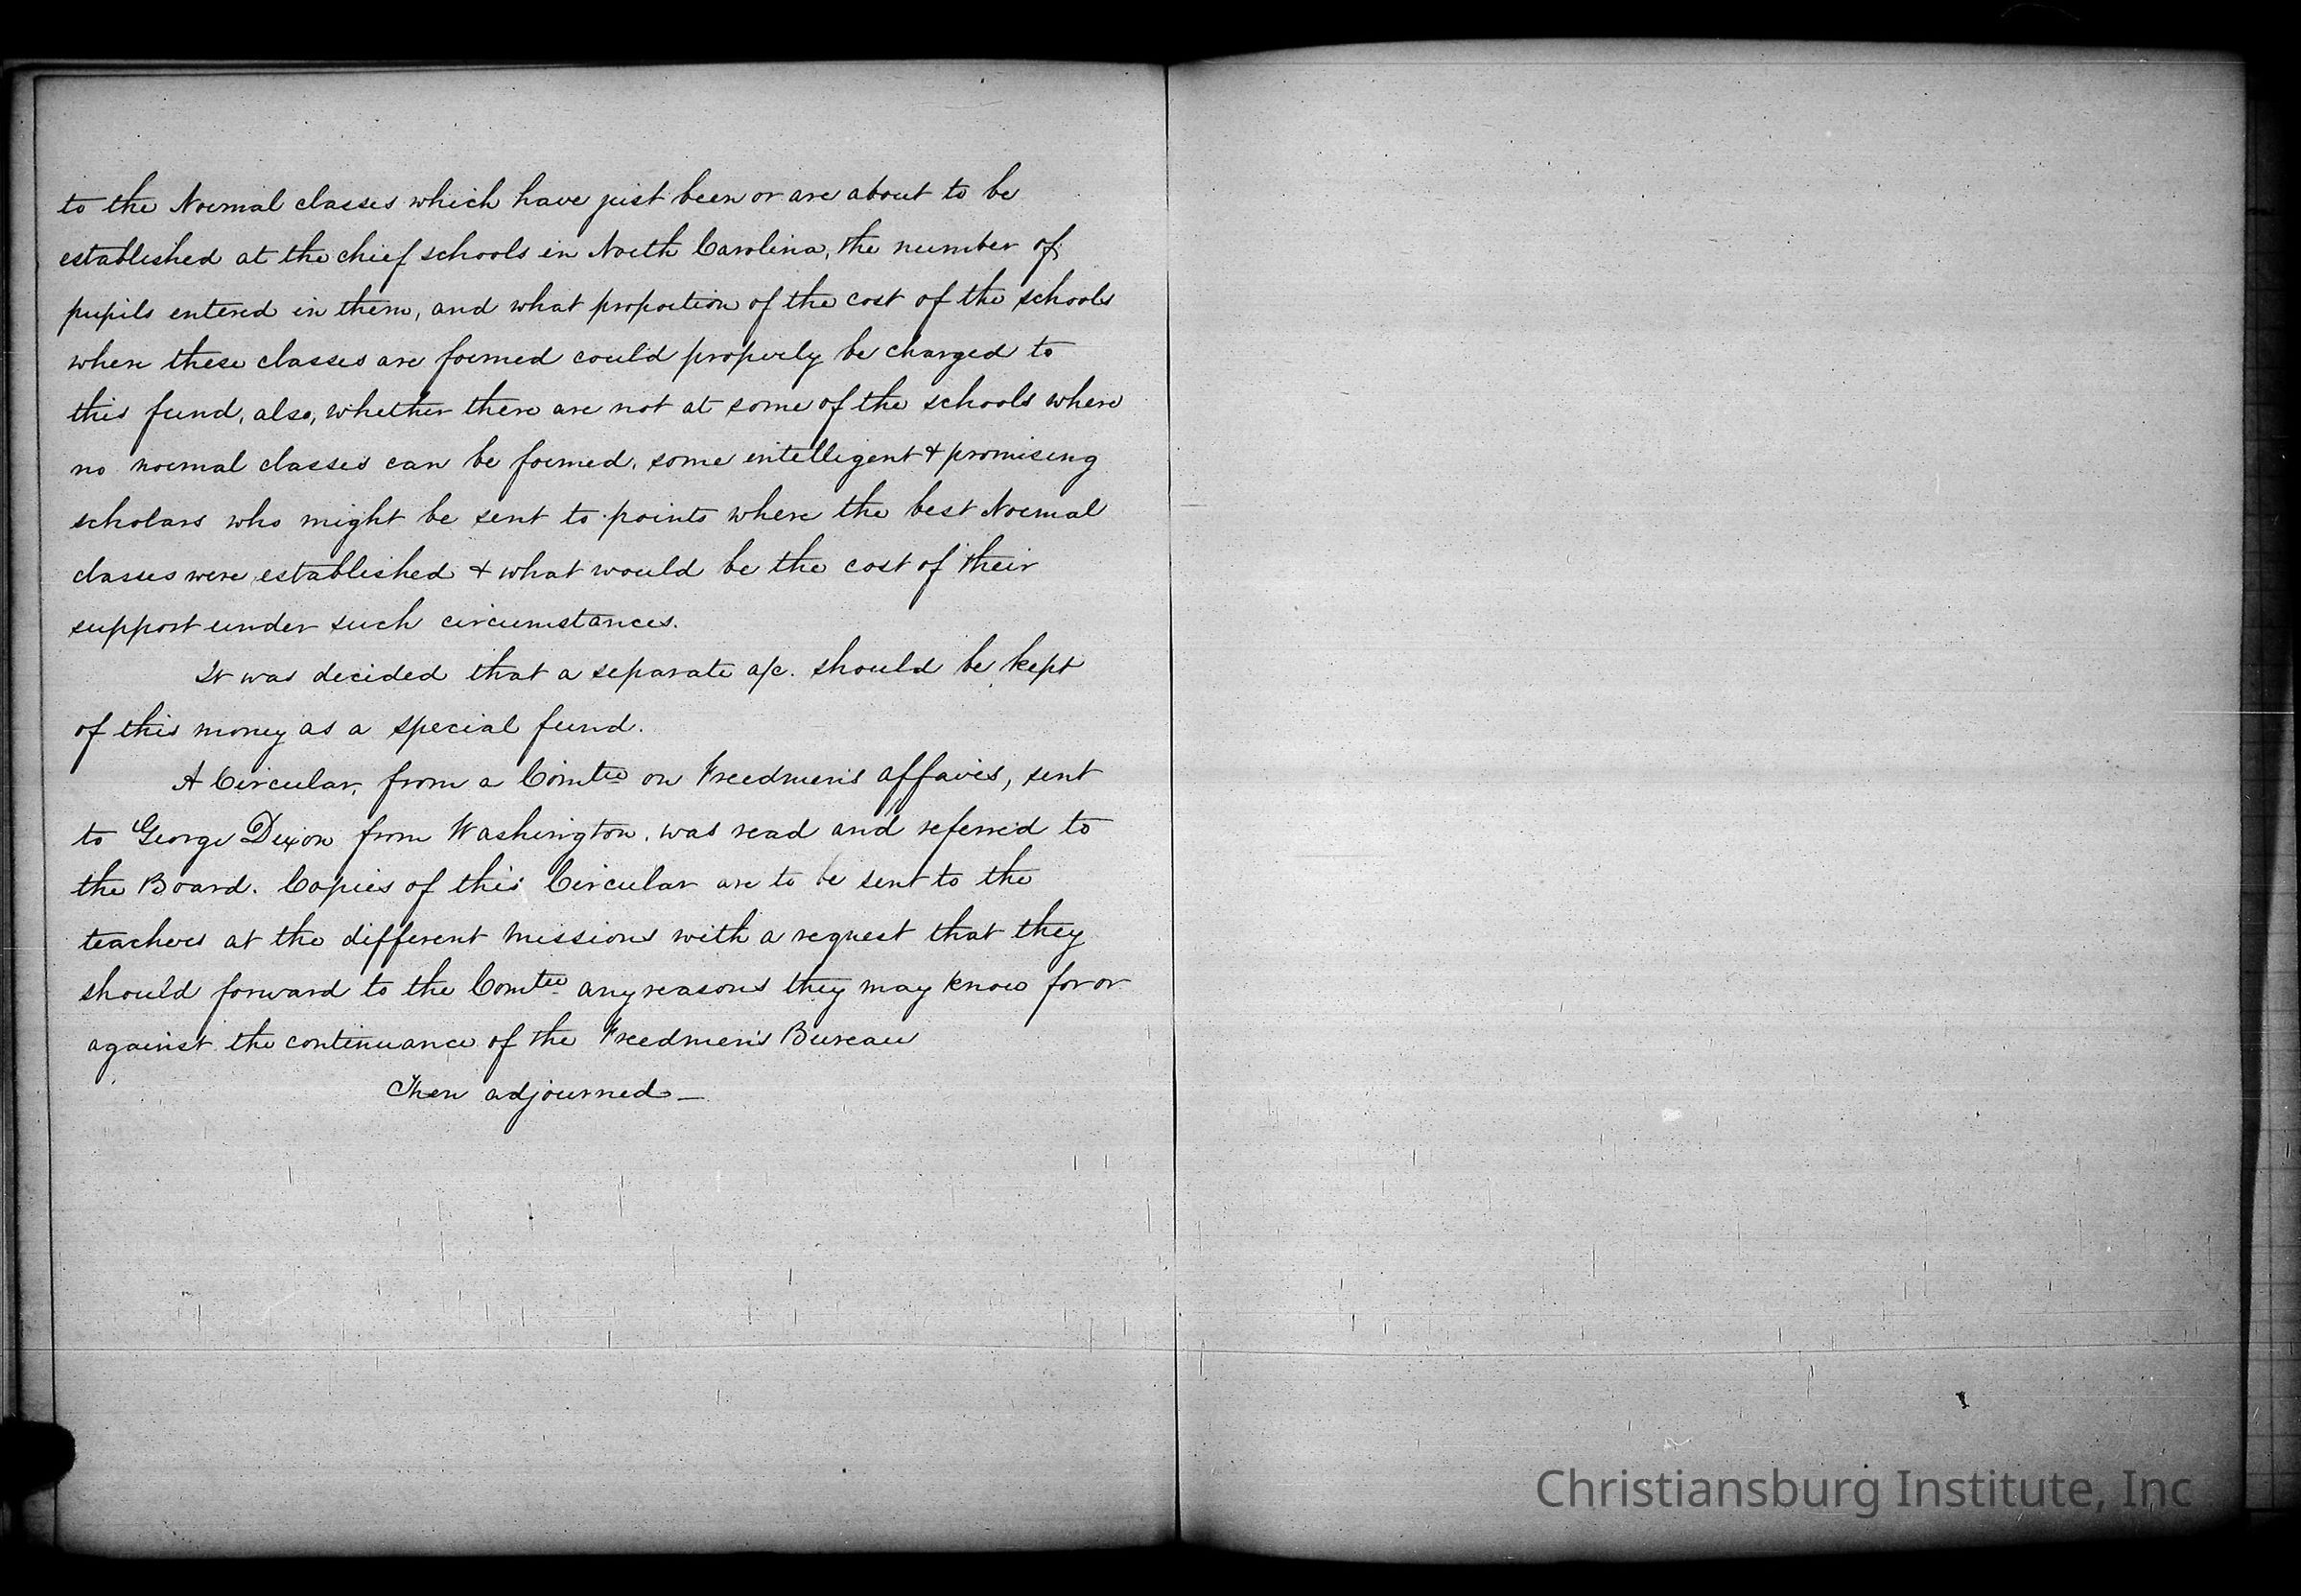 to the Normal classes which have just been or are about to be
established at the chief schools in North Carolina, the number of
pupils entered in them, and what proportion of the cost of the schools
where these classes are formed could properly be charged to
this fund, also, whether there are not at some of the schools where
no normal classes can be formed, some intelligent & promising
scholars who might be sent to points where the best Normal
classes were established & what would be the cost of their
support under such circumstances.
It was decided that a separate a/c. should be kept
of this money as a special fund.
A Circular, from a Comtee on Freedmen's affairs, sent
to George Dixon from Washington, was read and referred to
the Board. Copies of this Circular are to be sent to the
teachers at the different missions with a request that they
should forward to the Comtee any reasons they may know for or
against the continuance of the Freedmen's Bureau
Then adjourned —
Christiansburg Institute, Inc